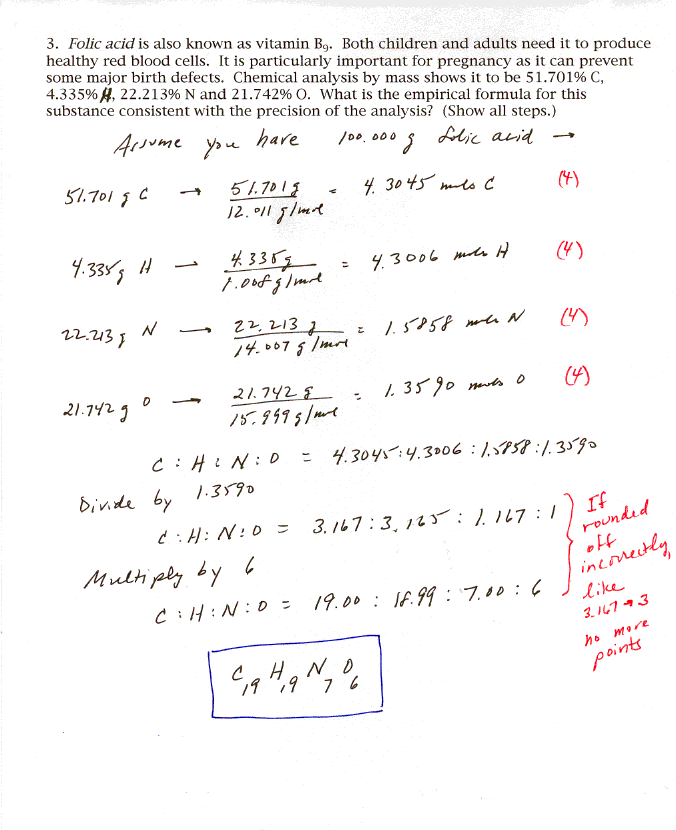 3. Folic acid is also known as vitamin B₉. Both children and adults need it to produce
healthy red blood cells. It is particularly important for pregnancy as it can prevent
some major birth defects. Chemical analysis by mass shows it to be 51.701% C,
4.335% H, 22.213% N and 21.742% O. What is the empirical formula for this
substance consistent with the precision of the analysis? (Show all steps.)
Assume you have 100.000 g folic acid →
51.701 g C → 51.701 g / 12.011 g/mol = 4.3045 mols C (4)
4.335 g H → 4.335 g / 1.008 g/mol = 4.3006 moles H (4)
22.213 g N → 22.213 g / 14.007 g/mol = 1.5858 moles N (4)
21.742 g O → 21.742 g / 15.999 g/mol = 1.3590 moles O (4)
C : H : N : O = 4.3045 : 4.3006 : 1.5858 : 1.3590
Divide by 1.3590
C : H : N : O = 3.167 : 3.165 : 1.167 : 1
Multiply by 6
C : H : N : O = 19.00 : 18.99 : 7.00 : 6
If
rounded
off
incorrectly,
like
3.167 → 3
no more
points
C₁₉ H₁₉ N₇ O₆